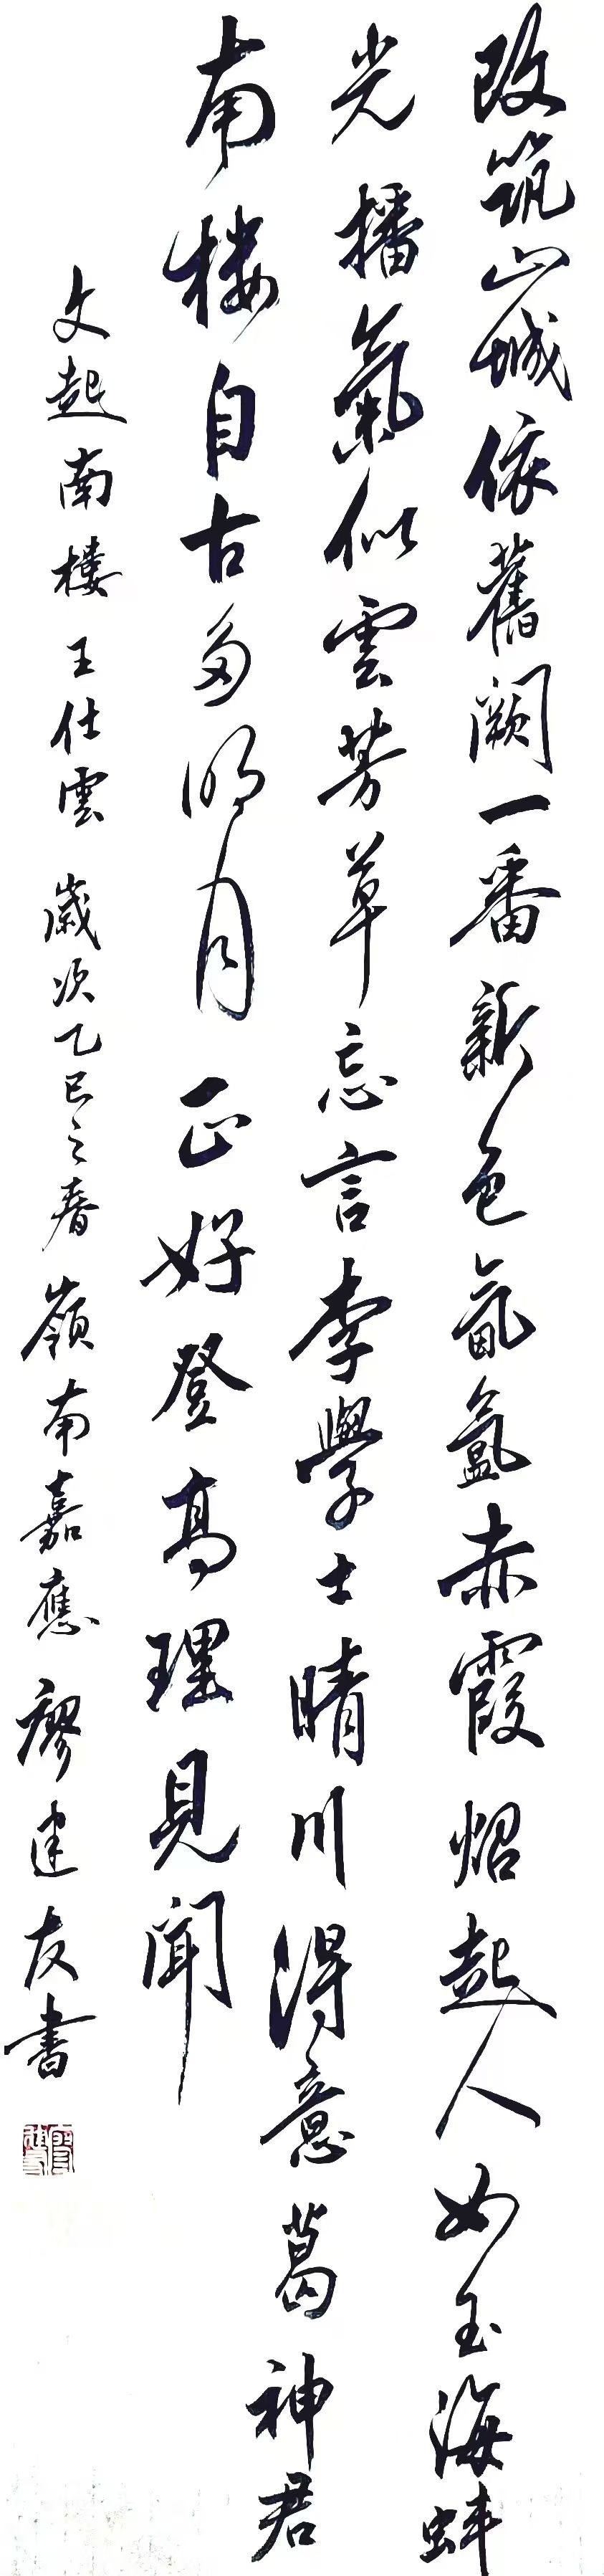 改筑山城依舊闕一番新色氤氳赤霞熖起人如玉海蚌
光播氣似雲芳草忘言李學士晴川得意葛神君
南楼自古多明月正好登高理見聞
文起南樓 王仕雲 歲次乙巳之春 嶺南嘉應 廖建友書